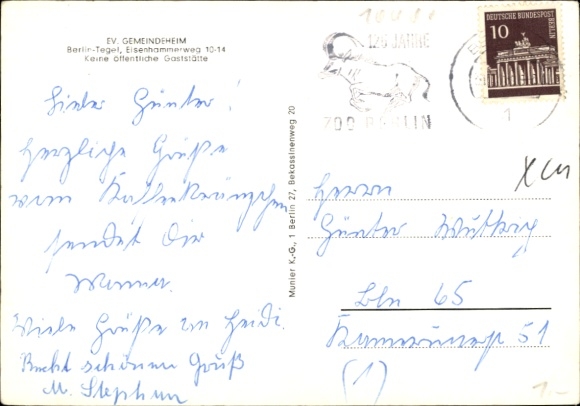 EV. GEMEINDEHEIM
Berlin-Tegel, Eisenhammerweg 10-14
Keine öffentliche Gaststätte
Lieber Günter!
Herzliche Grüße
vom Kaffeekränzchen
sendet Dir
Werner.
Viele Grüße an Heidi.
Recht schönen Gruß
M. Stephan
Munier K.-G., 1 Berlin 27, Bekassinenweg 20
125 JAHRE
ZOO BERLIN
1
DEUTSCHE BUNDESPOST
BERLIN
10
Herrn
Günter
Bln 65
Kamerunerst 51
(1)
1-